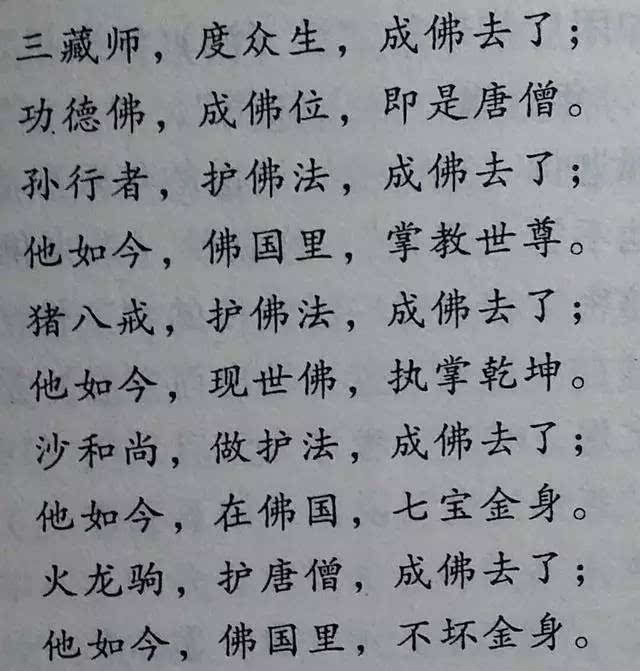 三藏师，度众生，成佛去了；
功德佛，成佛位，即是唐僧。
孙行者，护佛法，成佛去了；
他如今，佛国里，掌教世尊。
猪八戒，护佛法，成佛去了；
他如今，现世佛，执掌乾坤。
沙和尚，做护法，成佛去了；
他如今，在佛国，七宝金身。
火龙驹，护唐僧，成佛去了；
他如今，佛国里，不坏金身。